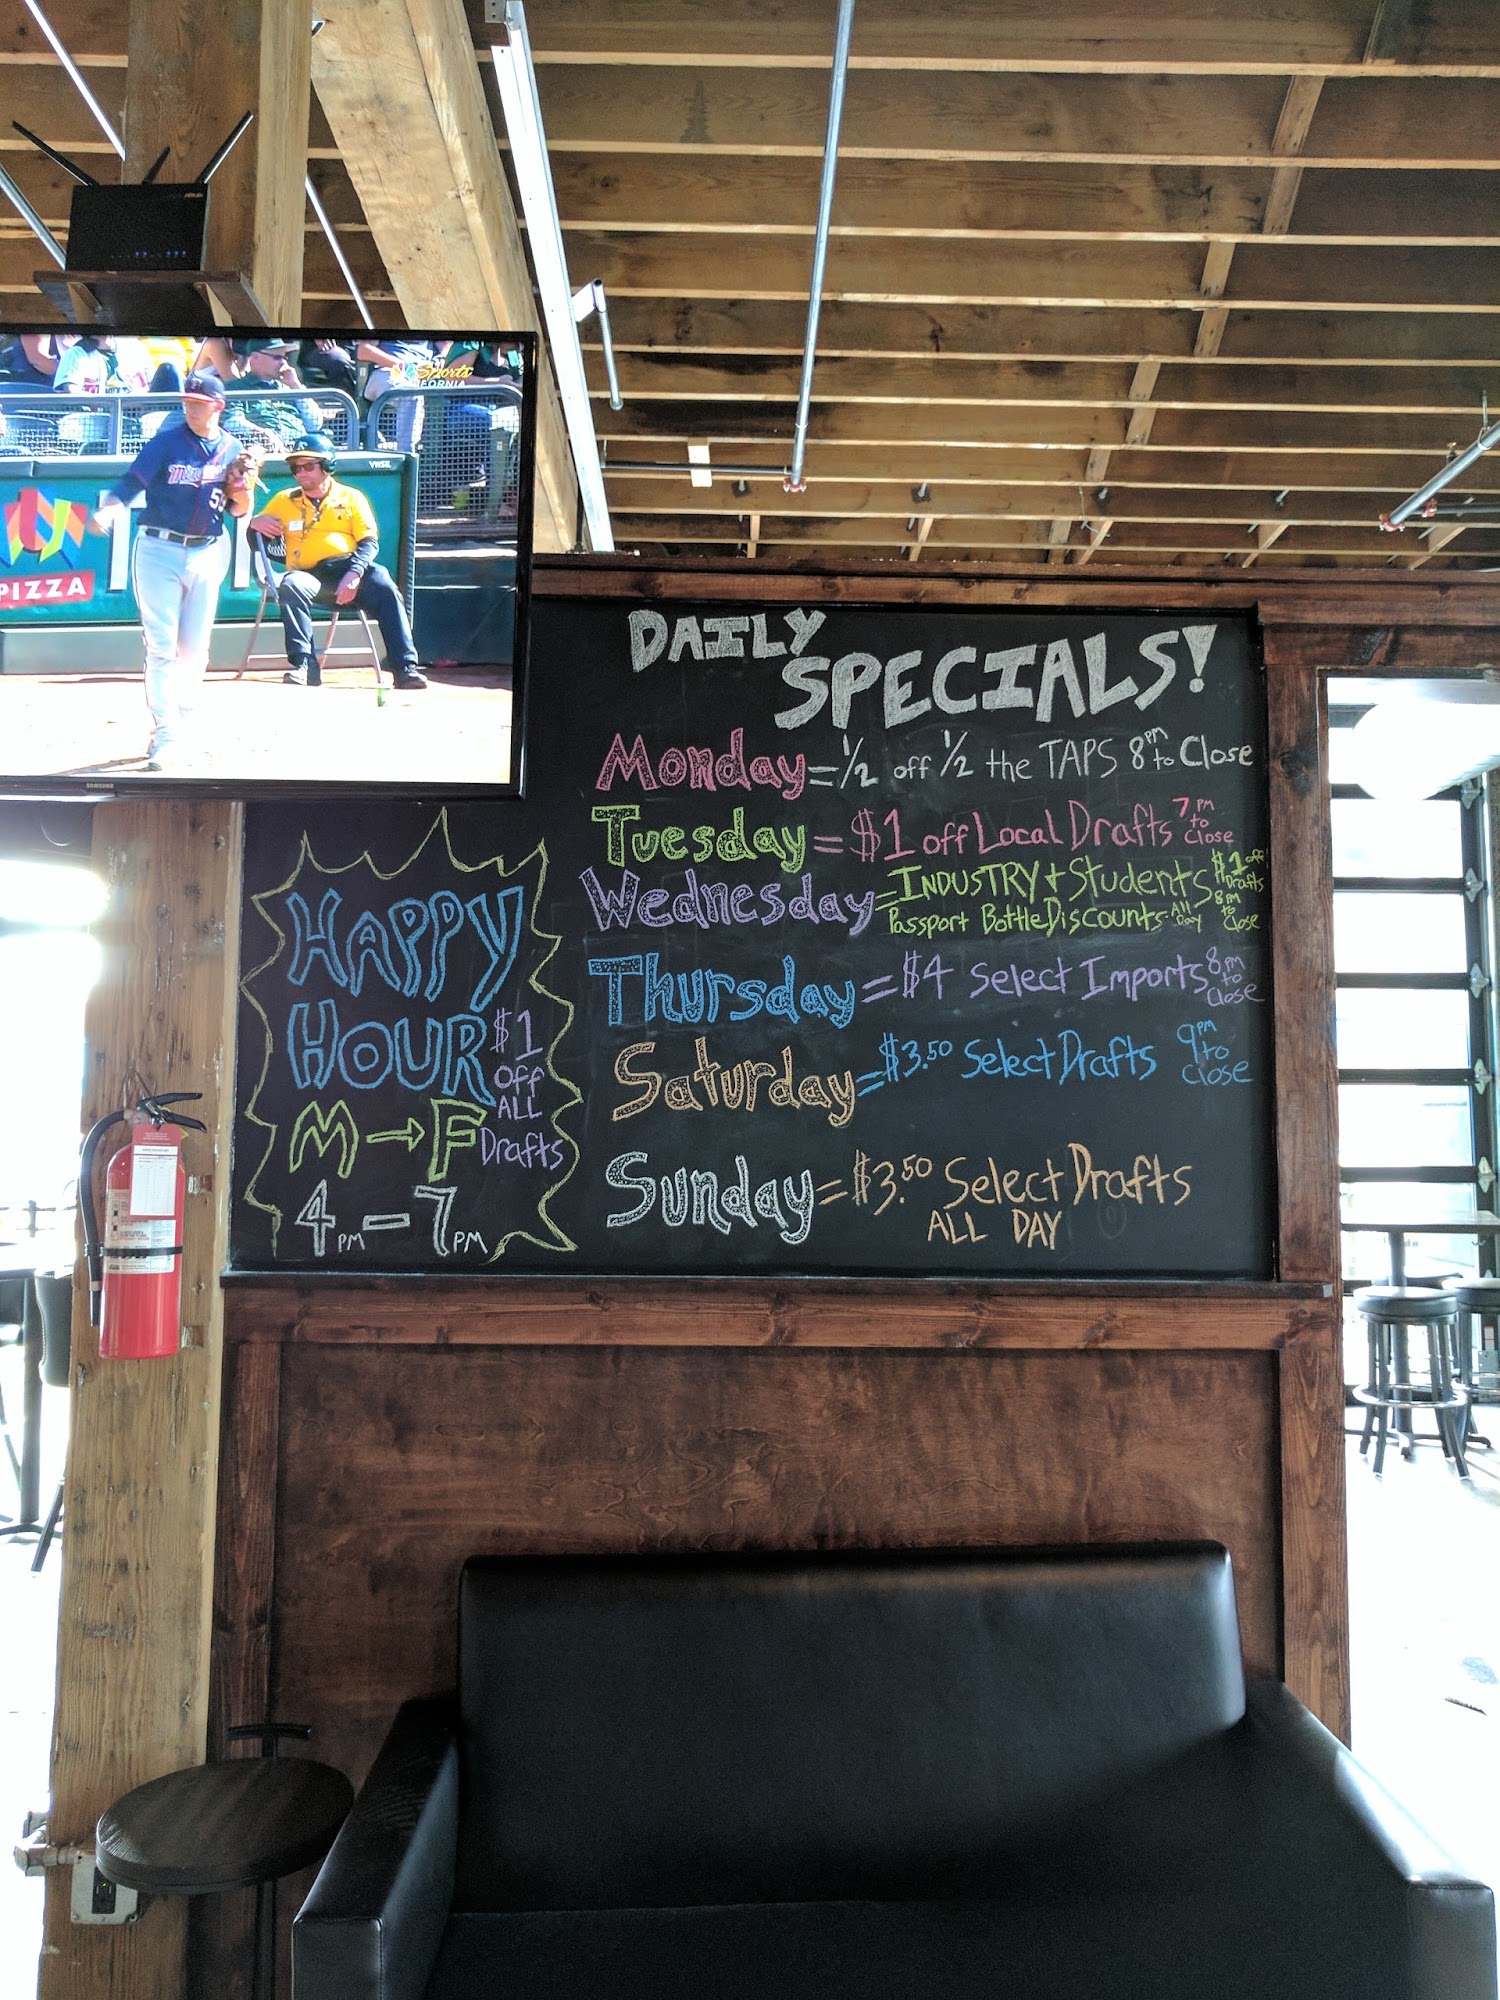 Sports
CALIFORNIA
PIZZA
SAMSUNG
DAILY
SPECIALS!
Monday = 1/2 off 1/2 the TAPS 8PM to Close
Tuesday = $1 off Local Drafts 7PM to Close
Wednesday = INDUSTRY + Students $1 off Drafts 8PM to Close
Passport Bottle Discounts. All Day
Thursday = $4 Select Imports 8PM to Close
Saturday = $3.50 Select Drafts 9PM to Close
Sunday = $3.50 Select Drafts
ALL DAY
HAPPY
HOUR
$1
Off
ALL
Drafts
M → F
4PM - 7PM